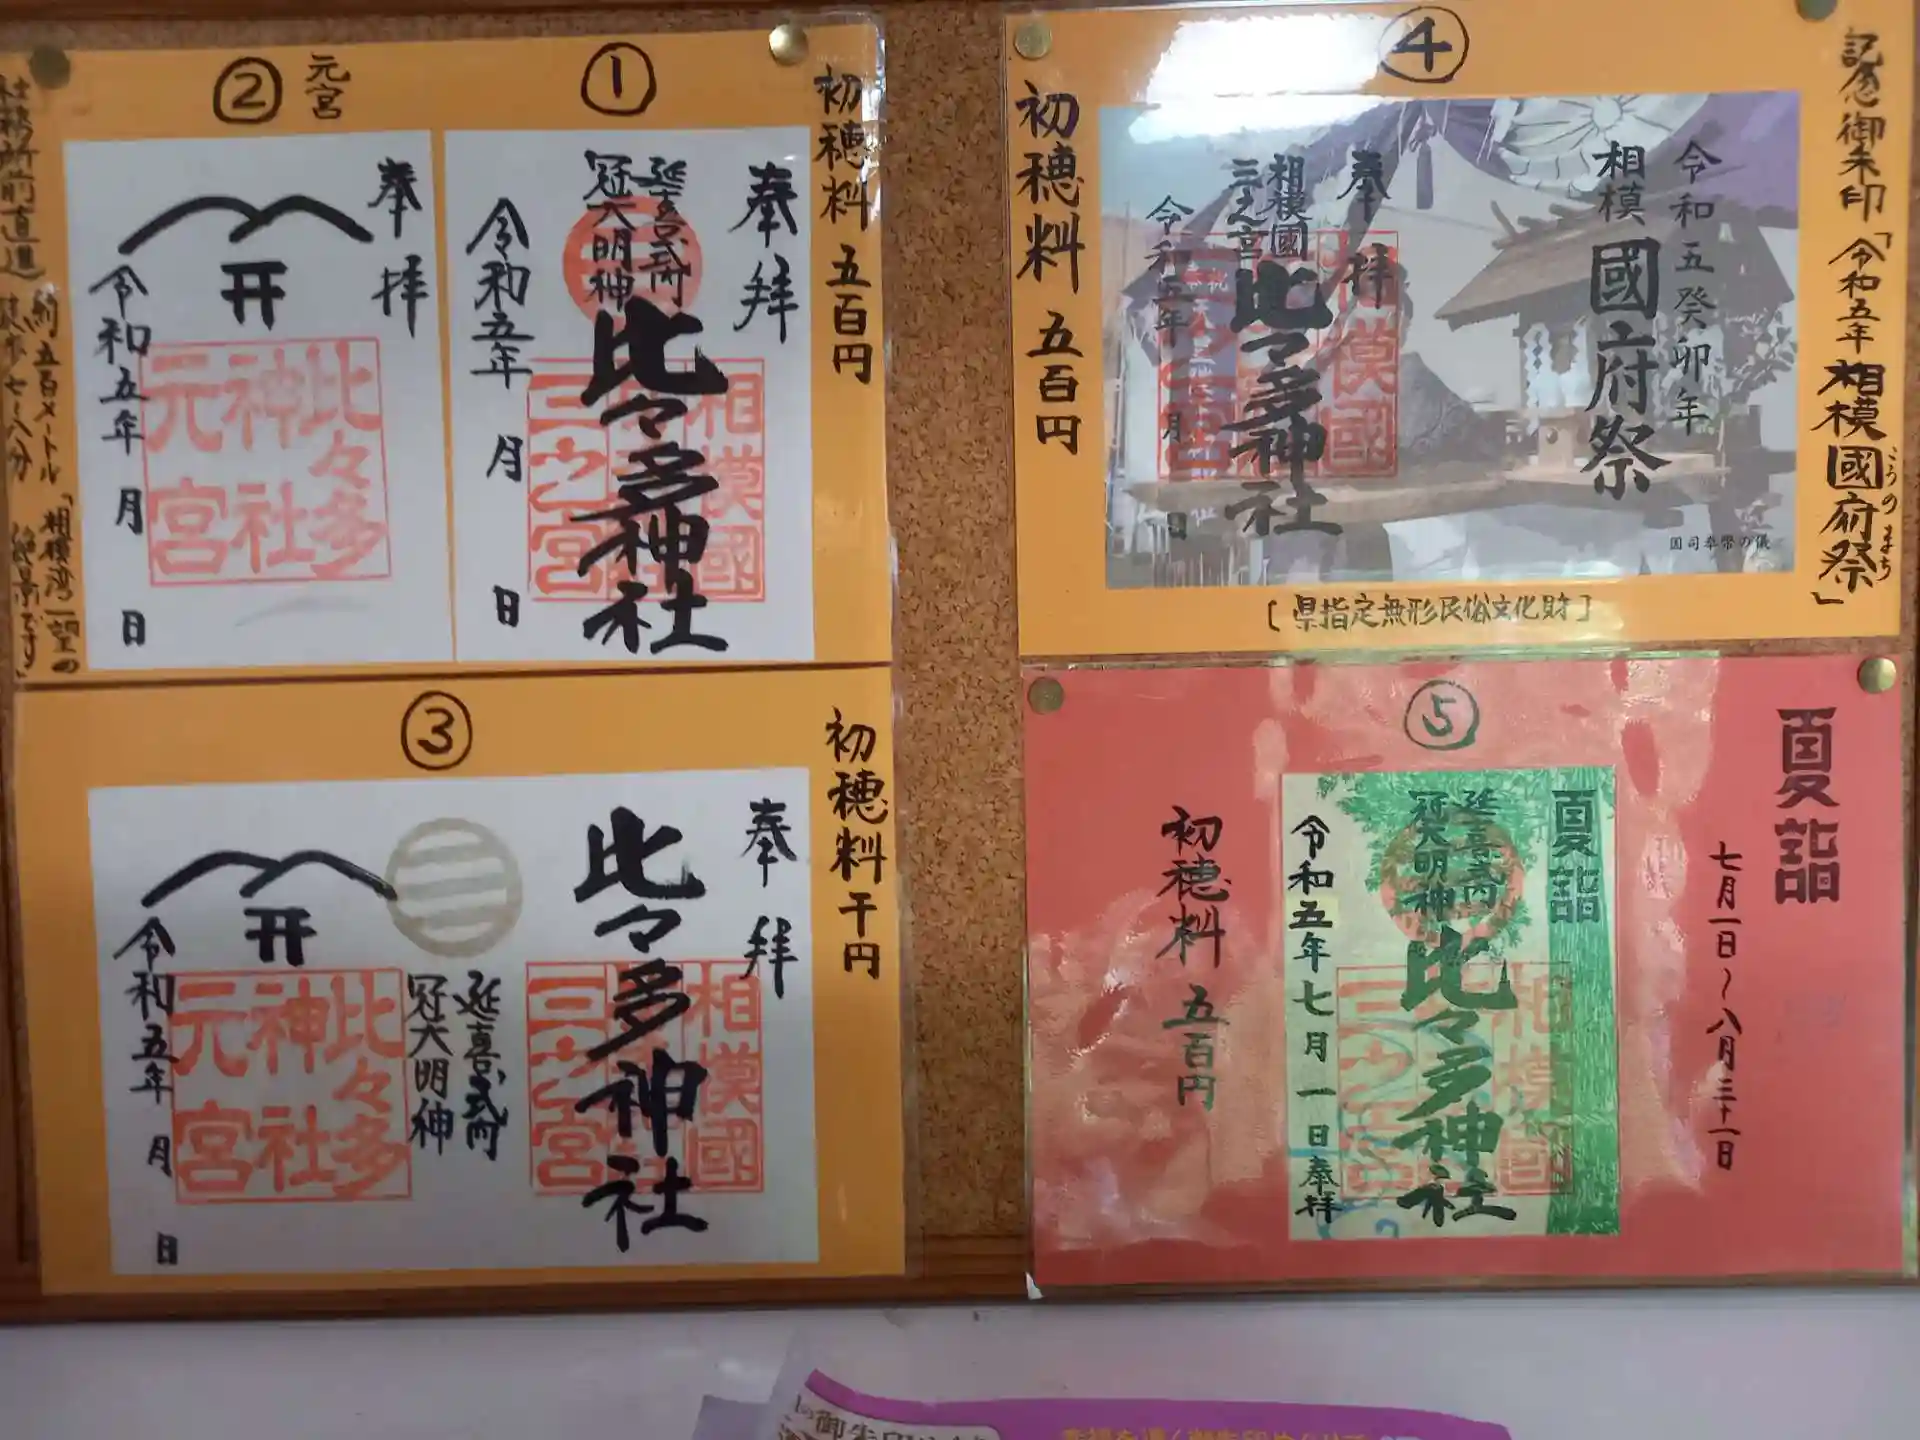 ①
初穂料 五百円
奉拝
延喜式内
冠大明神
比々多神社
相模國
三之宮
令和五年 月 日
②
元宮
奉拝
开
比々多
神社
元宮
令和五年 月 日
社務所前直進 約五百メートル
徒歩七~八分
「相模湾一望の
絶景です」
③
初穂料 千円
奉拝
比々多神社
相模國
三之宮
延喜式内
冠大明神
开
比々多
神社
元宮
令和五年 月 日
④
記念御朱印「令和五年 相模國府祭」
こうのまち
初穂料 五百円
令和五癸卯年
相模 國府祭
国司奉幣の儀
奉拝
相模國
三之宮
比々多神社
相模國
令和五年 月 日
[県指定無形民俗文化財]
⑤
夏詣
七月一日~八月三十一日
夏詣
延喜式内
冠大明神
比々多神社
相模國
三之宮
令和五年七月一日奉拝
初穂料 五百円